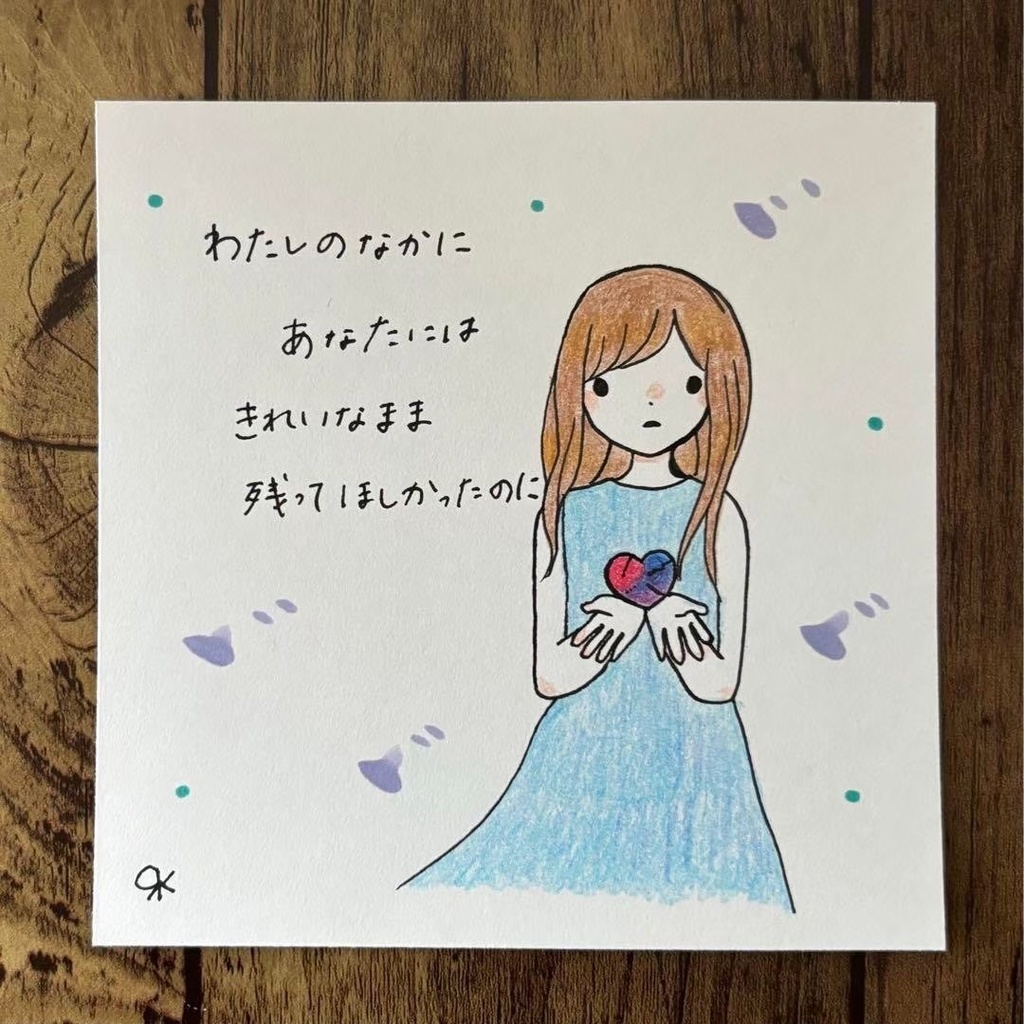 わたしのなかに
あなたには
きれいなまま
残ってほしかったのに